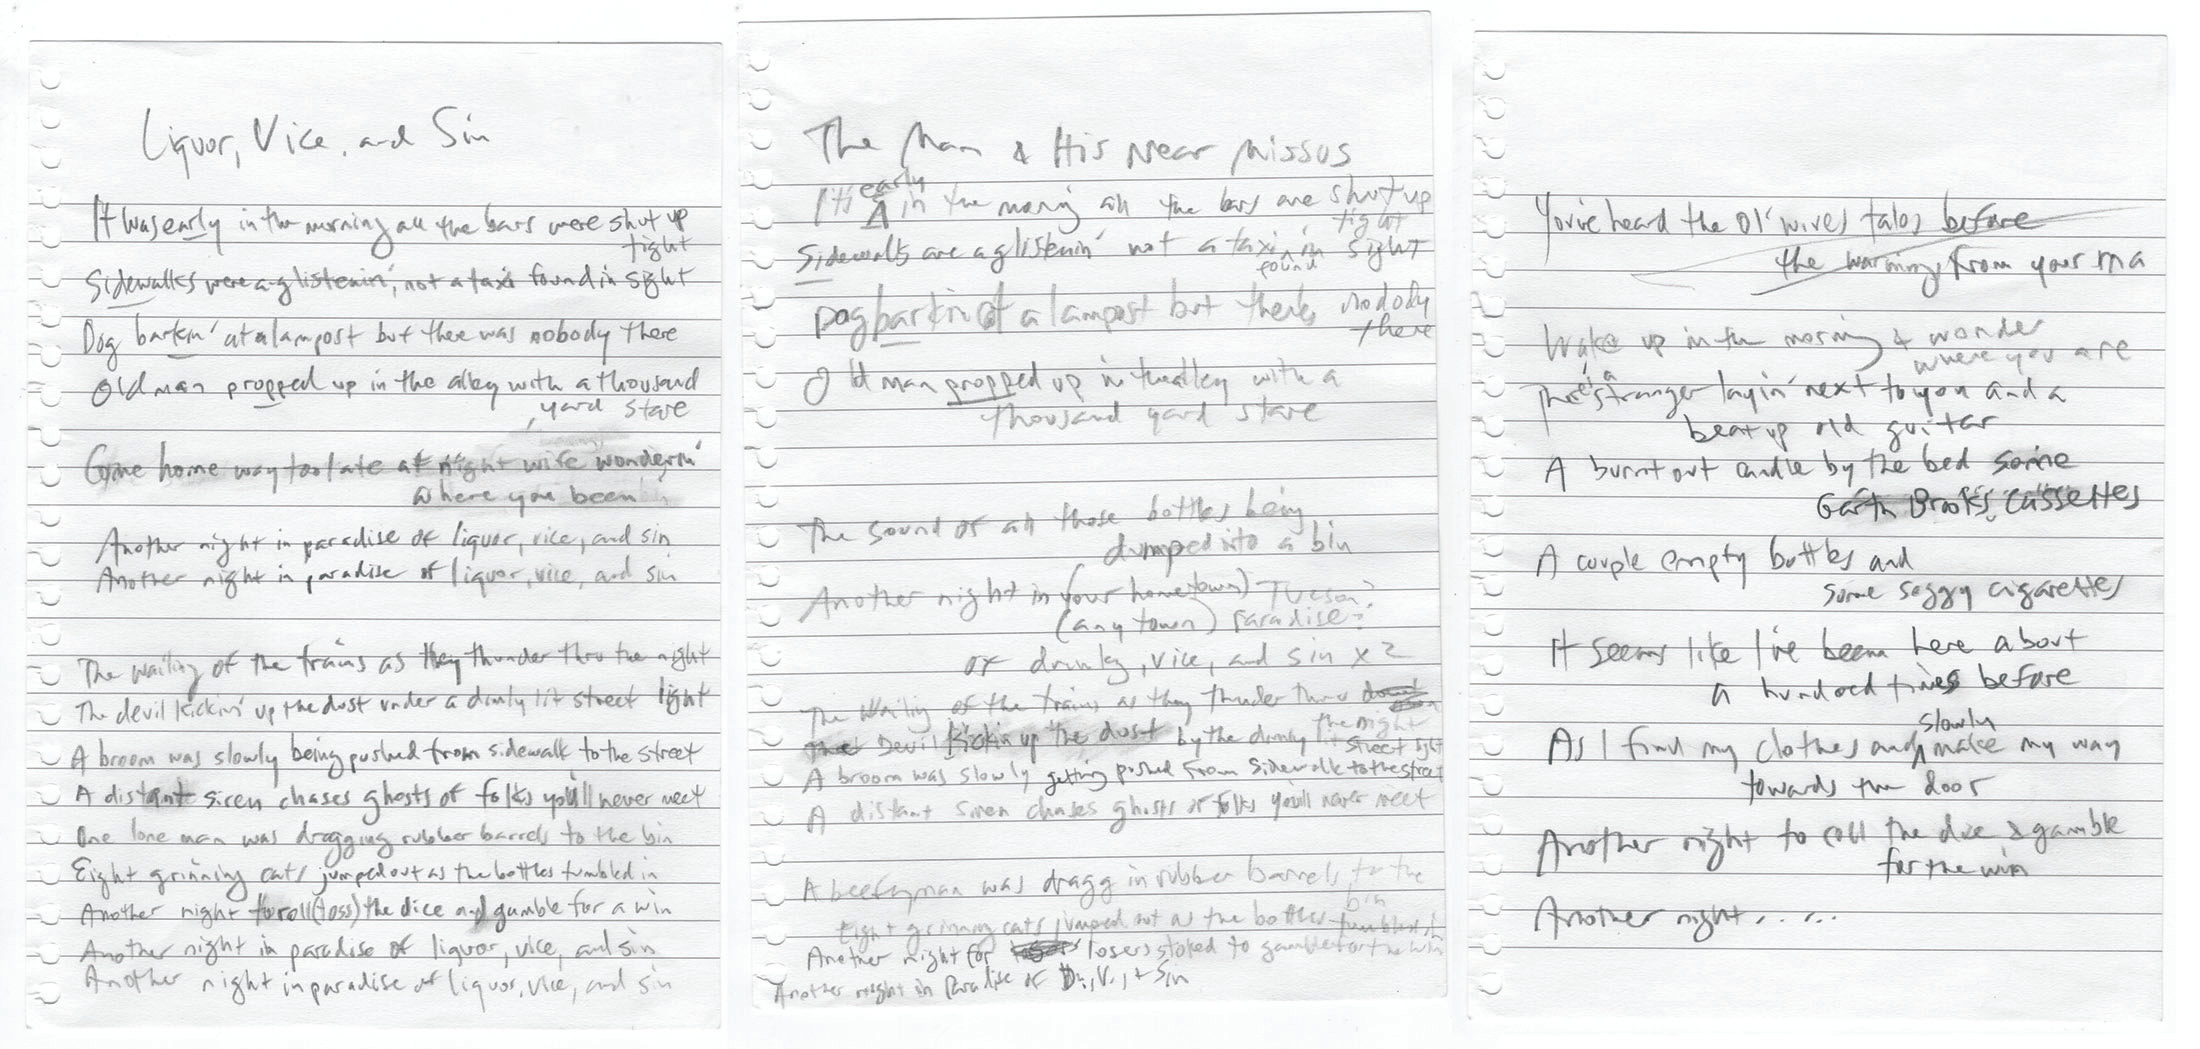 Liquor, Vice, and Sin
It was early in the morning all the bars were shut up
tight
Sidewalks were a-glistenin', not a taxi found in sight
Dog barkin' at a lampost but thee was nobody there
Old man propped up in the alley with a thousand
yard stare
Come home way too late at night wife wonderin'
where you been
Another night in paradise of liquor, vice, and sin
Another night in paradise of liquor, vice, and sin
The wailing of the trains as they thunder thru the night
The devil kickin' up the dust under a dimly lit street light
A broom was slowly being pushed from sidewalk to the street
A distant siren chases ghosts of folks you'll never meet
One lone man was dragging rubber barrels to the bin
Eight grinning cats jumped out as the bottles tumbled in
Another night to roll (toss) the dice and gamble for a win
Another night in paradise of liquor, vice, and sin
Another night in paradise of liquor, vice, and sin
The Man & His Near Missus
It's early in the morning all the bars are shut up
tight
Sidewalks are a glistenin' not a taxi in sight
found
Dog barkin at a lampost but there's nobody
there
Old man propped up in the alley with a
thousand yard stare
The sound of all those bottles being
dumped into a bin
Another night in (your hometown) Tucson?
(any town) Paradise?
of drinky, vice, and sin x 2
The wailing of the trains as they thunder thru
the night
The Devil kickin up the dust by the dimly lit street light
A broom was slowly getting pushed from sidewalk to the street
A distant siren chases ghosts of folks you'll never meet
A beefy man was draggin rubber barrels to the
bin
Eight grinning cats jumped out as the bottles tumbled in
Another night for losers stoked to gamble for the win
Another night in Paradise of D., V., + Sin
You've heard the Ol' wives tales before
the warnings from your ma
Wake up in the morning & wonder
where you are
There's a stranger layin' next to you and a
beat up old guitar
A burnt out candle by the bed some
Garth Brooks cassettes
A couple empty bottles and
some soggy cigarettes
It seems like I've beem here about
a hundred times before
As I find my clothes and slowly make my way
towards the door
Another night to roll the dice & gamble
for the win
Another night.....